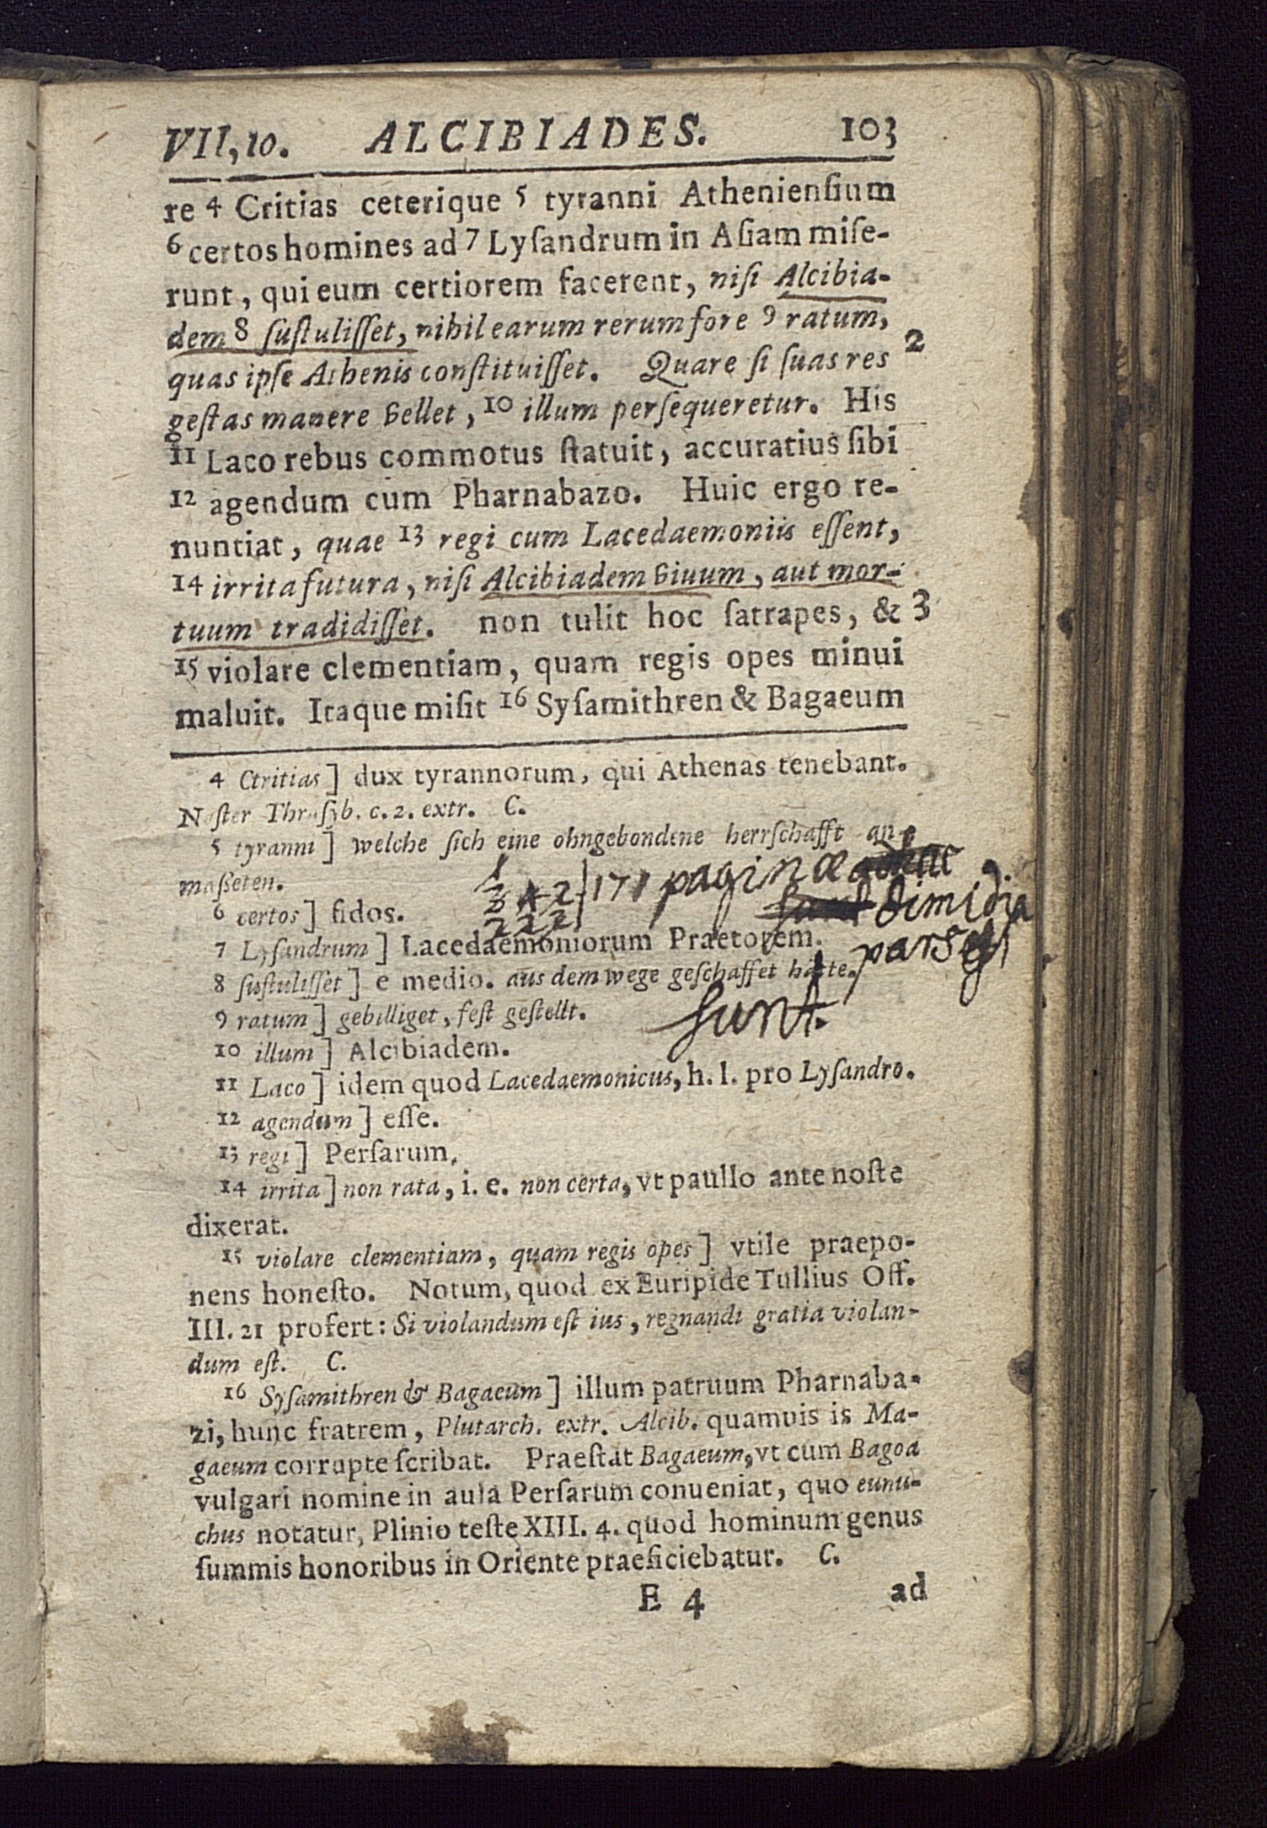 VII, 10. ALCIBIADES. 103
re 4 Critias ceterique 5 tyranni Atheniensium
6 certos homines ad 7 Lyſandrum in Aſiam miſe-
runt, qui eum certiorem facerent, niſi Alcibia-
dem 8 ſuſtuliſſet, nihil earum rerum fore 9 ratum,
quas ipſe Athenis conſtituiſſet. Quare ſi ſuas res 2
geſtas manere vellet, 10 illum perſequeretur. His
11 Laco rebus commotus ſtatuit, accuratius ſibi
12 agendum cum Pharnabazo. Huic ergo re-
nuntiat, quae 13 regi cum Lacedaemoniis eſſent,
14 irrita futura, niſi Alcibiadem viuum, aut mor-
tuum tradidiſſet. non tulit hoc ſatrapes, & 3
15 violare clementiam, quam regis opes minui
maluit. Itaque miſit 16 Syſamithren & Bagaeum
4 Ctritias] dux tyrannorum, qui Athenas tenebant.
Noſter Thraſyb. c. 2. extr. C.
5 tyranni] welche ſich eine ohngebondene herrſchafft an-
maſſeten.
171 paginæ
dimidia
6 certos] fidos.
7 Lyſandrum] Lacedaemoniorum Praetorem.
pars
8 ſuſtuliſſet] e medio. aus dem wege geſchaffet hätte.
ſunt.
9 ratum] gebilliget, feſt geſtellt.
10 illum] Alcibiadem.
11 Laco] idem quod Lacedaemonicus, h. l. pro Lyſandro.
12 agendum] eſſe.
13 regi] Perſarum.
14 irrita] non rata, i. e. non certa, vt paullo ante noſte
dixerat.
15 violare clementiam, quam regis opes] vtile praepo-
nens honeſto. Notum, quod ex Euripide Tullius Off.
III. 21 profert: Si violandum eſt ius, regnandi gratia violan-
dum eſt. C.
16 Syſamithren & Bagaeum] illum patruum Pharnaba-
zi, hunc fratrem, Plutarch. extr. Alcib. quamuis is Ma-
gaeum corrupte ſcribat. Praeſtat Bagaeum, vt cum Bagoa
vulgari nomine in aula Perſarum conueniat, quo eunu-
chus notatur, Plinio teſte XIII. 4. quod hominum genus
ſummis honoribus in Oriente praeficiebatur. C.
E 4 ad